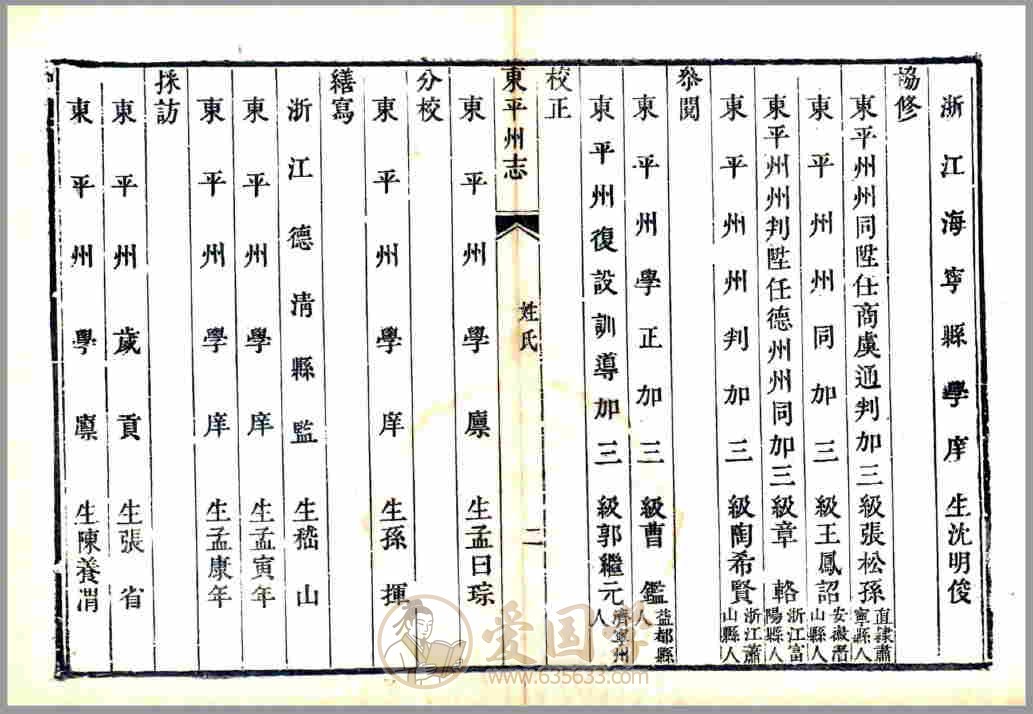 浙江海寧縣學庠生沈明俊
協修
東平州州同陞任商虞通判加三級張松孫直隸蕭寧縣人
東平州州同加三級王鳳詔安徽潛山縣人
東平州州判陞任德州州同加三級章輅浙江富陽縣人
東平州州判加三級陶希賢浙江蕭山縣人
叅閱
東平州學正加三級曹鑑益都縣人
東平州復設訓導加三級郭繼元濟寧州人
校正
東平州志
姓氏
二
東平州學廪生孟曰琮
分校
東平州學庠生孫揮
繕寫
浙江德清縣監生嵇山
東平州學庠生孟寅年
東平州學庠生孟康年
採訪
東平州歲貢生張省
東平州學廪生陳養渭
爱国学
www.635633.com